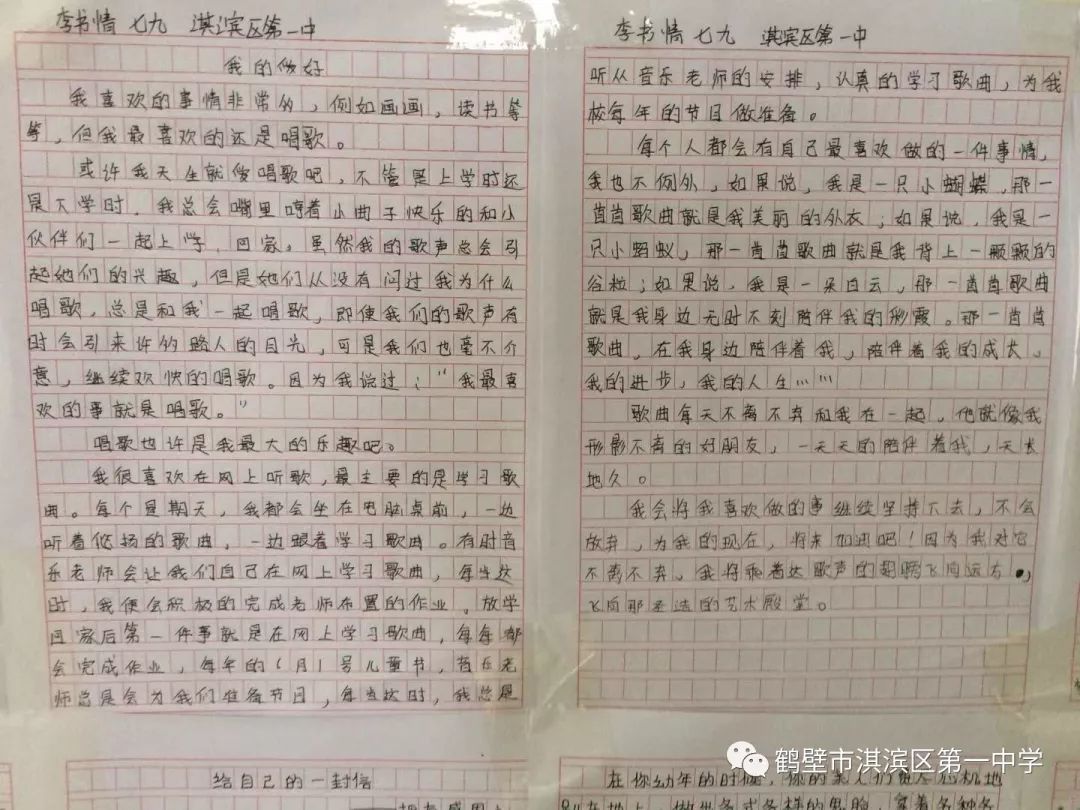 李书情 七九 淇滨区第一中
我的做好
我喜欢的事情非常多，例如画画，读书等
等，但我最喜欢的还是唱歌。
或许我天生就爱唱歌吧，不管是上学时还
是大学时，我总会嘴里哼着小曲子快乐的和小
伙伴们一起上学，回家。虽然我的歌声总会引
起她们的兴趣，但是她们从没有问过我为什么
唱歌，总是和我一起唱歌，即使我们的歌声有
时会引来许多路人的目光，可是我们也毫不介
意，继续欢快的唱歌。因为我说过：“我最喜
欢的事就是唱歌。”
唱歌也许是我最大的乐趣吧。
我很喜欢在网上听歌，最主要的是学习歌
曲。每个星期天，我都会坐在电脑桌前，一边
听着悠扬的歌曲，一边跟着学习歌曲。有时音
乐老师会让我们自己在网上学习歌曲，每当这
时，我便会积极的完成老师布置的作业。放学
回家后第一件事就是在网上学习歌曲，每每都
会完成作业，每年的6月1号儿童节，音乐老
师总是会为我们准备节目，每当这时，我总是
李书情 七九 淇滨区第一中
听从音乐老师的安排，认真的学习歌曲，为我
校每年的节目做准备。
每个人都会有自己最喜欢做的一件事情，
我也不例外，如果说，我是一只小蝴蝶，那一
首首歌曲就是我美丽的外衣；如果说，我是一
只小蚂蚁，那一首首歌曲就是我背上一颗颗的
谷粒；如果说，我是一朵白云，那一首首歌曲
就是我身边无时不刻陪伴我的彩霞。那一首首
歌曲，在我身边陪伴着我，陪伴着我的成长，
我的进步，我的人生……
歌曲每天不离不弃和我在一起，他就像我
形影不离的好朋友，一天天的陪伴着我，天长
地久。
我会将我喜欢做的事继续坚持下去，不会
放弃，为我的现在，将来加油吧！因为我对它
不离不弃，我将乘着这歌声的翅膀飞向远方，
飞向那圣洁的艺术殿堂。
给自己的一封信
在你幼年的时候，你的亲人们
鹤壁市淇滨区第一中学